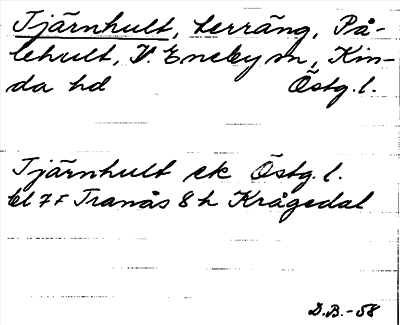 Tjärnhult, terräng, På-
lehult, V. Eneby sn, Kin-
da hd Östg.l.
Tjärnhult ek Östg.l.
bl 7F Tranås 8h Krågedal
D.B.-58